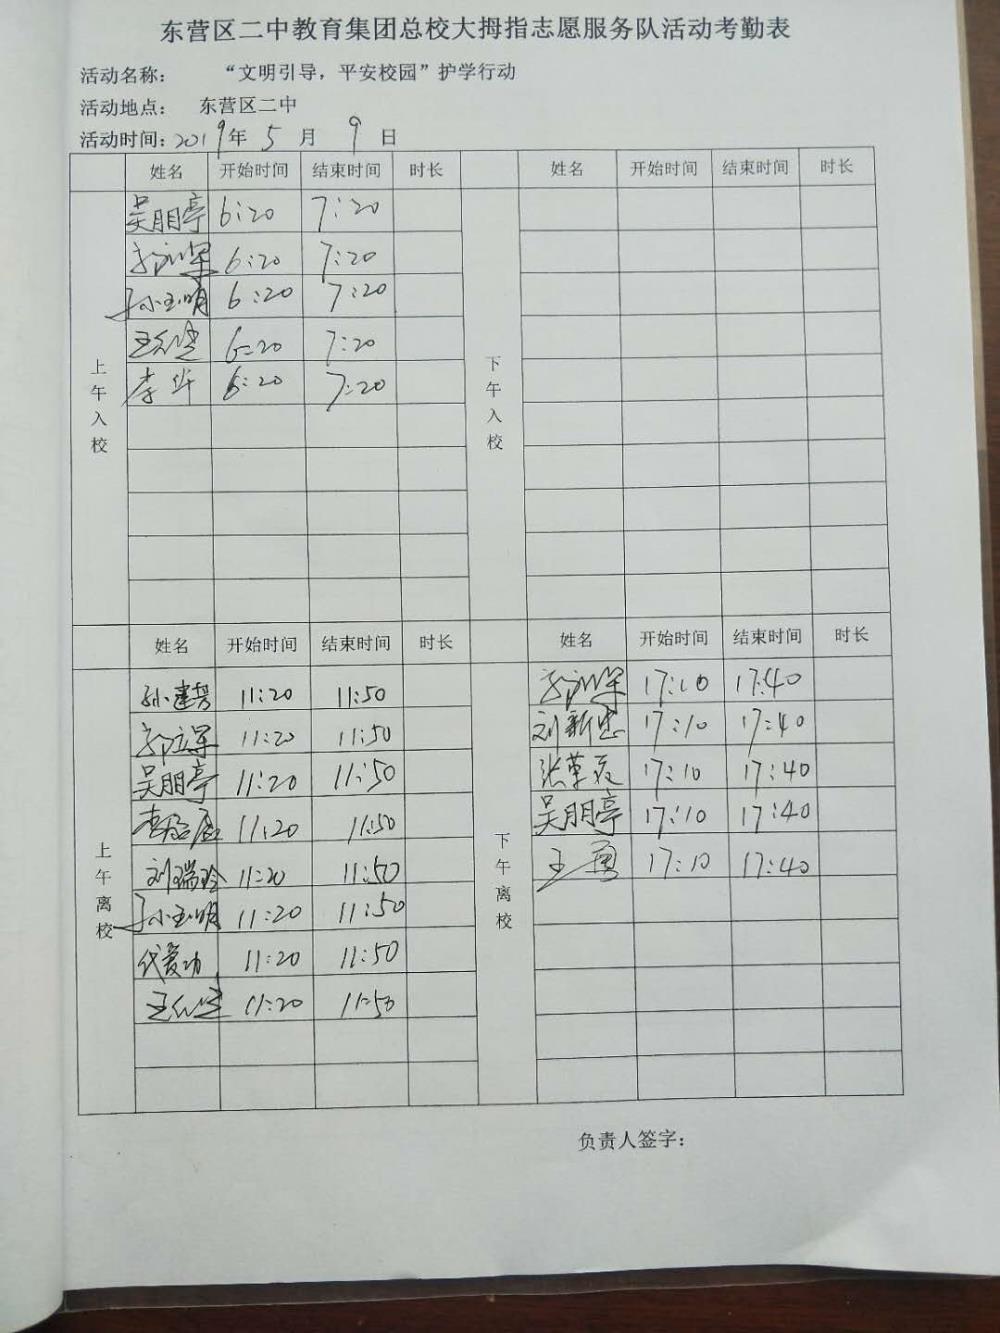 东营区二中教育集团总校大拇指志愿服务队活动考勤表
活动名称： “文明引导，平安校园”护学行动
活动地点： 东营区二中
活动时间：2019年 5 月 9 日
姓名 开始时间 结束时间 时长 姓名 开始时间 结束时间 时长
上午入校
下午入校
吴朋亭 6:20 7:20
6:20 7:20
孙玉明 6:20 7:20
6:20 7:20
李华 6:20 7:20
姓名 开始时间 结束时间 时长 姓名 开始时间 结束时间 时长
上午离校
下午离校
孙建 11:20 11:50 17:10 17:40
郭立军 11:20 11:50 刘新忠 17:10 17:40
吴朋亭 11:20 11:50 张 17:10 17:40
李 11:20 11:50 吴朋亭 17:10 17:40
刘瑞玲 11:20 11:50 王勇 17:10 17:40
孙玉明 11:20 11:50
代爱功 11:20 11:50
11:20 11:50
负责人签字：